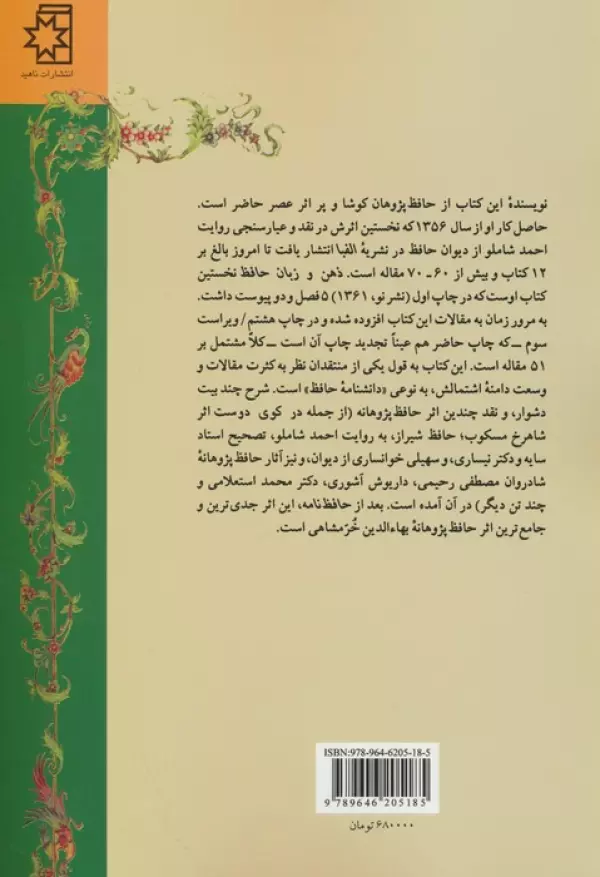 انتشارات ناهید
نویسندهٔ این کتاب از حافظ‌پژوهان کوشا و پر اثر عصر حاضر است.
حاصل کار او از سال ۱۳۵۶ که نخستین اثرش در نقد و عیارسنجی روایت
احمد شاملو از دیوان حافظ در نشریهٔ الفبا انتشار یافت تا امروز بالغ بر
۱۲ کتاب و بیش از ۶۰ ـ ۷۰ مقاله است. ذهن و زبان حافظ نخستین
کتاب اوست که در چاپ اول (نشر نو، ۱۳۶۱) ۵ فصل و دو پیوست داشت.
به مرور زمان به مقالات این کتاب افزوده شده و در چاپ هشتم/ ویراست
سوم ــ که چاپ حاضر هم عیناً تجدید چاپ آن است ــ کلاً مشتمل بر
۵۱ مقاله است. این کتاب به قول یکی از منتقدان نظر به کثرت مقالات و
وسعت دامنهٔ اشتمالش، به نوعی «دانشنامهٔ حافظ» است. شرح چند بیت
دشوار، و نقد چندین اثر حافظ‌پژوهانه (از جمله در کوی دوست اثر
شاهرخ مسکوب؛ حافظ شیراز، به روایت احمد شاملو، تصحیح استاد
سایه و دکتر نیساری، و سهیلی خوانساری از دیوان، و نیز آثار حافظ‌پژوهانهٔ
شادروان مصطفی رحیمی، داریوش آشوری، دکتر محمد استعلامی و
چند تن دیگر) در آن آمده است. بعد از حافظ‌نامه، این اثر جدی‌ترین و
جامع‌ترین اثر حافظ‌پژوهانهٔ بهاءالدین خُرّمشاهی است.
ISBN:978-964-6205-18-5
9 789646 205185
۶۸۰۰۰۰ تومان